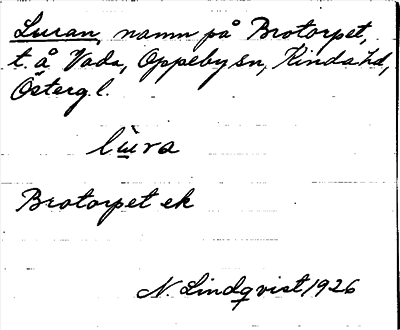 Luran, namn på Brotorpet,
t. å Vada, Oppeby sn, Kinda hd,
Österg. l.
lu̇ra
Brotorpet ek
N. Lindqvist 1926